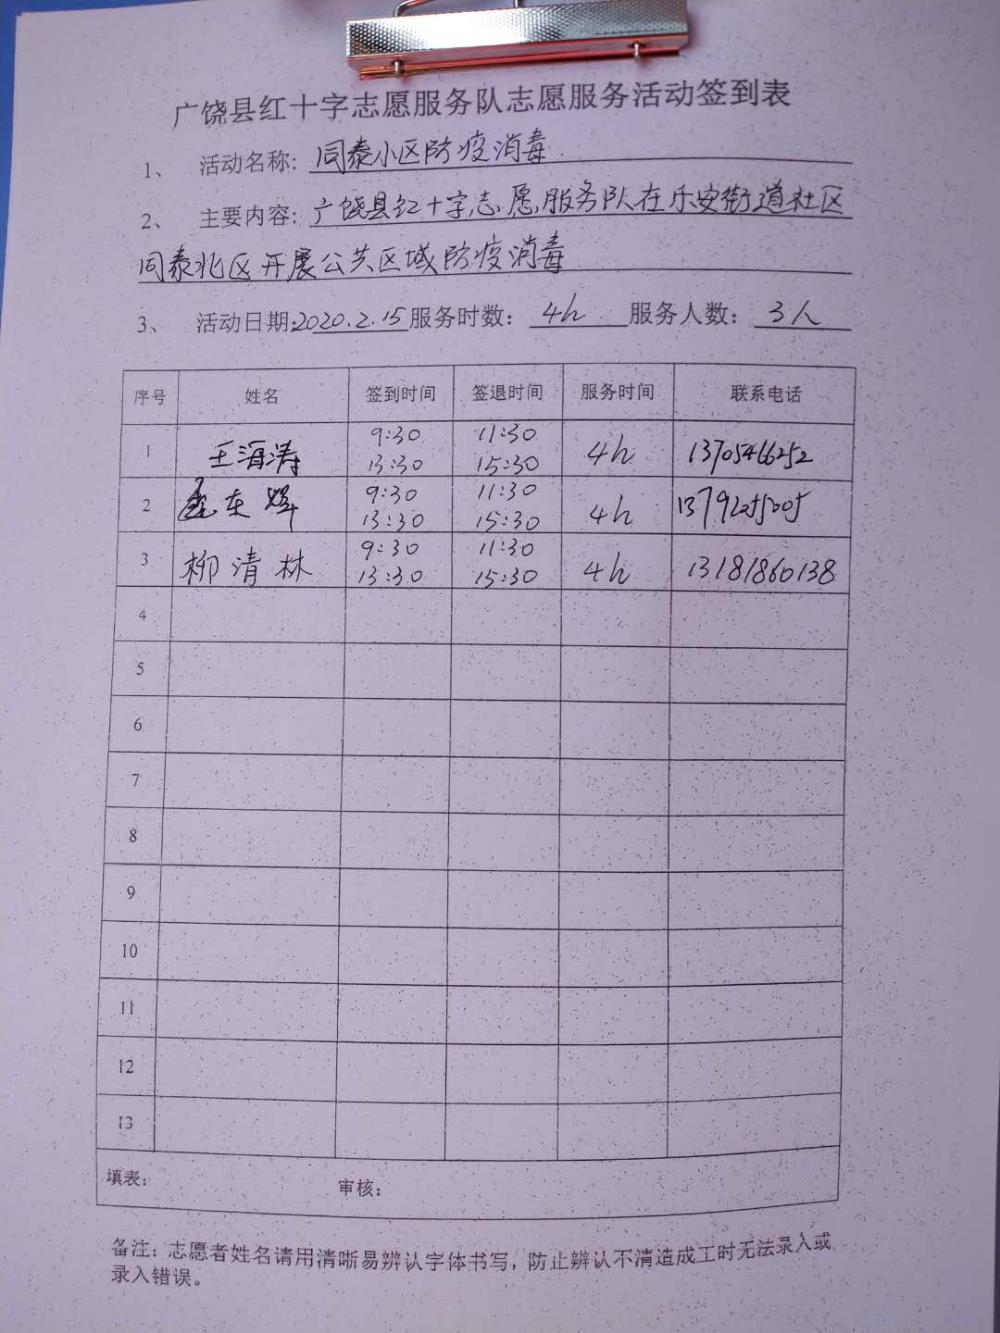 广饶县红十字志愿服务队志愿服务活动签到表
1、 活动名称: 同泰小区防疫消毒
2、 主要内容: 广饶县红十字志愿服务队在乐安街道社区
同泰北区开展公共区域防疫消毒
3、 活动日期:2020.2.15 服务时数: 4h 服务人数: 3人
序号 姓名 签到时间 签退时间 服务时间 联系电话
1 王海涛 9:30 11:30 4h 13705466252
13:30 15:30
2 东辉 9:30 11:30 4h
13:30 15:30
3 柳清林 9:30 11:30 4h 13181860138
13:30 15:30
4
5
6
7
8
9
10
11
12
13
填表: 审核:
备注: 志愿者姓名请用清晰易辨认字体书写，防止辨认不清造成工时无法录入或
录入错误。